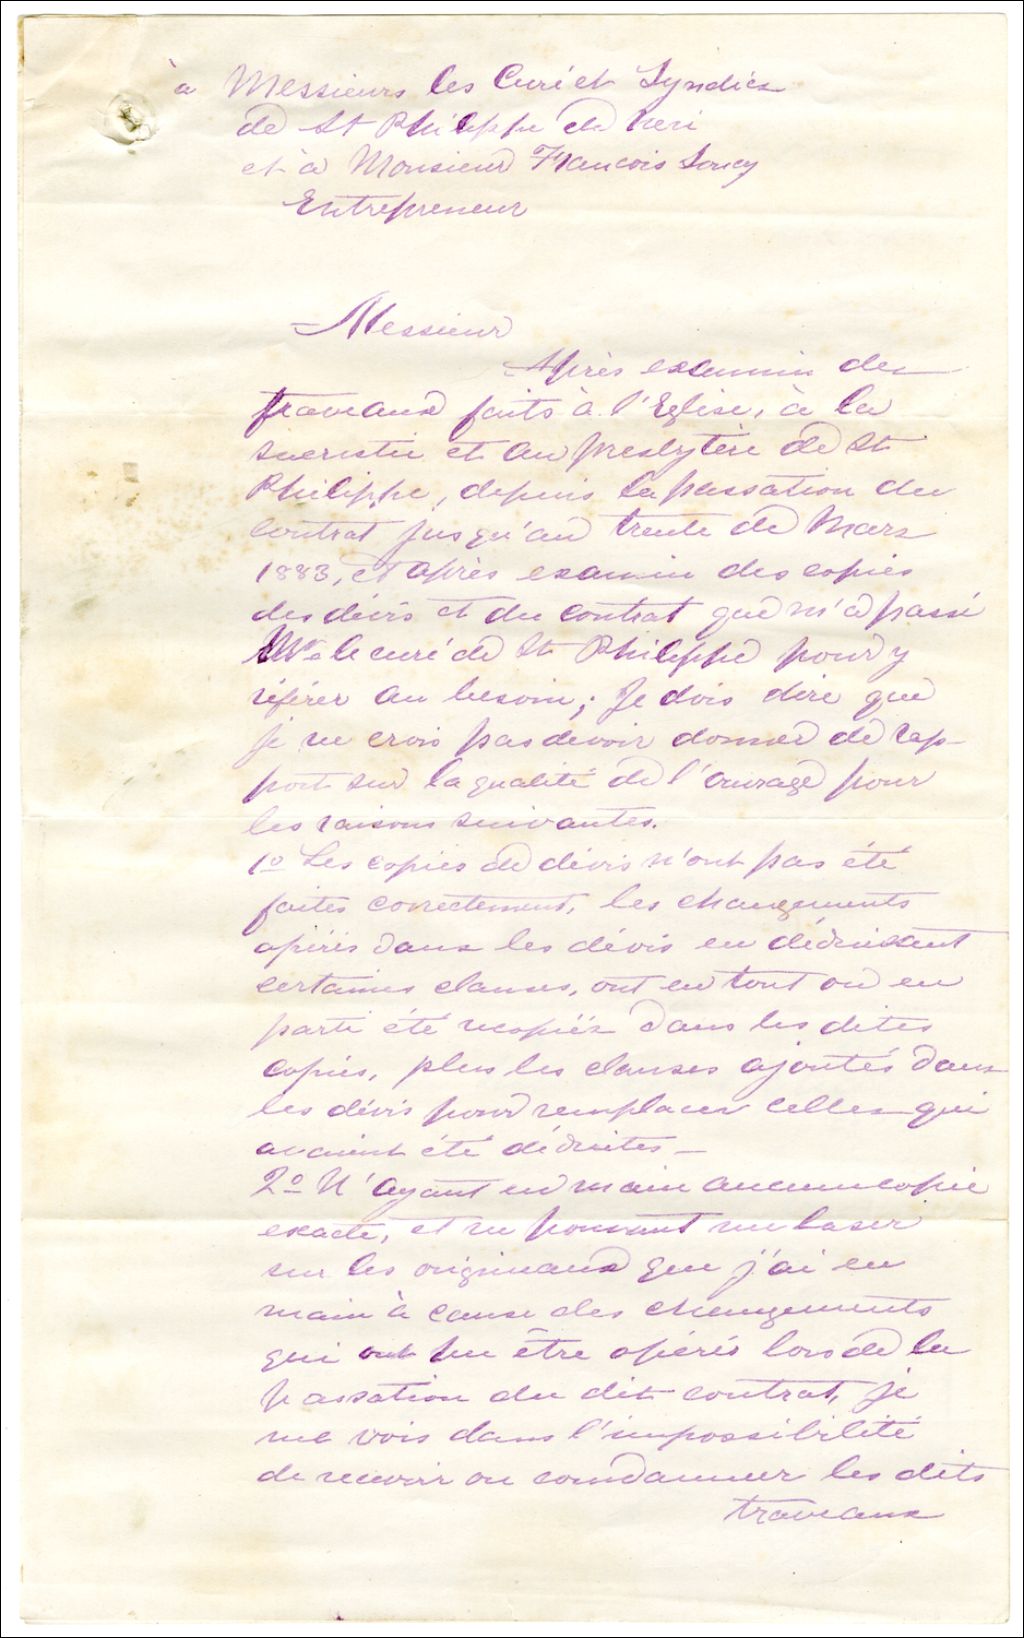 à Messieurs les Curé et Syndics
de St Philippe de Neri
et à Monsieur Francois Soucy
Entrepreneur
Messieurs
Après examin des
traveaux faits à l'Eglise, à la
sacristie et au presbytère de St
Philippe, depuis la passation du
contrat jusqu'au trente de Mars
1883, et après examin des copies
des dévis et du contrat que m'a passé
Mr le curé de St Philippe pour y
référer au besoin; Je dois dire que
je ne crois pas devoir donner de rap-
port sur la qualité de l'ouvrage pour
les raisons suivantes.
1o Les copies de dévis n'ont pas été
faites correctement, les changements
opérés dans les dévis en déduisant
certaines clauses, ont en tout ou en
parti été recopiés dans les dites
copies, plus les clauses ajoutés dans
les dévis pour remplacer celles qui
avaient été déduites —
2o N'ayant en main aucune copie
exacte, et ne pouvant me baser
sur les originaux que j'ai en
main à cause des changements
qui ont pu être opérés lors de la
passation du dit contrat, je
me vois dans l'impossibilité
de recevoir ou condamner les dits
traveaux